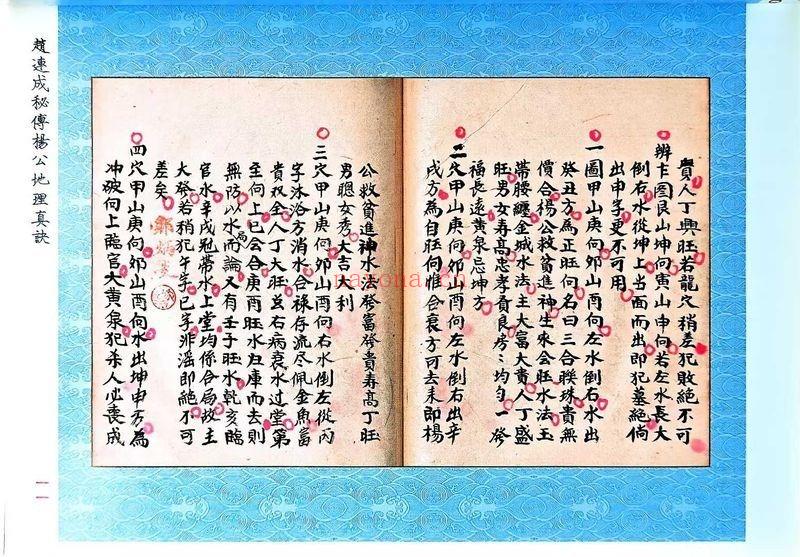 趙連成秘傳楊公地理真訣
貴人丁興旺若龍穴稍差犯敗絕不可
辨卞圖艮山坤向寅山申向若左水長大
倒右水從坤上當面而出即犯墓絕倘
出申字更不可用
一圖甲山庚向夘山酉向左水倒右水出
癸丑方為正旺向名曰三合聯珠貴無
價合楊公救貧進神生來会旺水法玉
帶腰纏金城水法主大富大貴人丁盛
旺男女寿高忠孝賢良房々均勻一發
福長遠黄泉忌坤方
二穴甲山庚向夘山酉向左水倒右出辛
戌方為自旺向惟合衰方可去未即楊
公救貧進神水々發富發貴寿高丁旺
男聰女秀大吉大利
三穴甲山庚向夘山酉向右水倒左從丙
字沐浴方消水合禄存流尽佩金魚富
貴双全人丁大旺
至向上已会合庚酉旺水归庫而去則
無防以水局而論又有壬子旺水乾亥臨
官水辛戌冠帶水上堂均係合局故主
大發若稍犯午字巳字非滛即絕不可
差矣
四穴甲山庚向夘山酉向水出坤申方為
冲破向上臨官犯大黄泉犯杀人必喪成
一一
nayona.cn